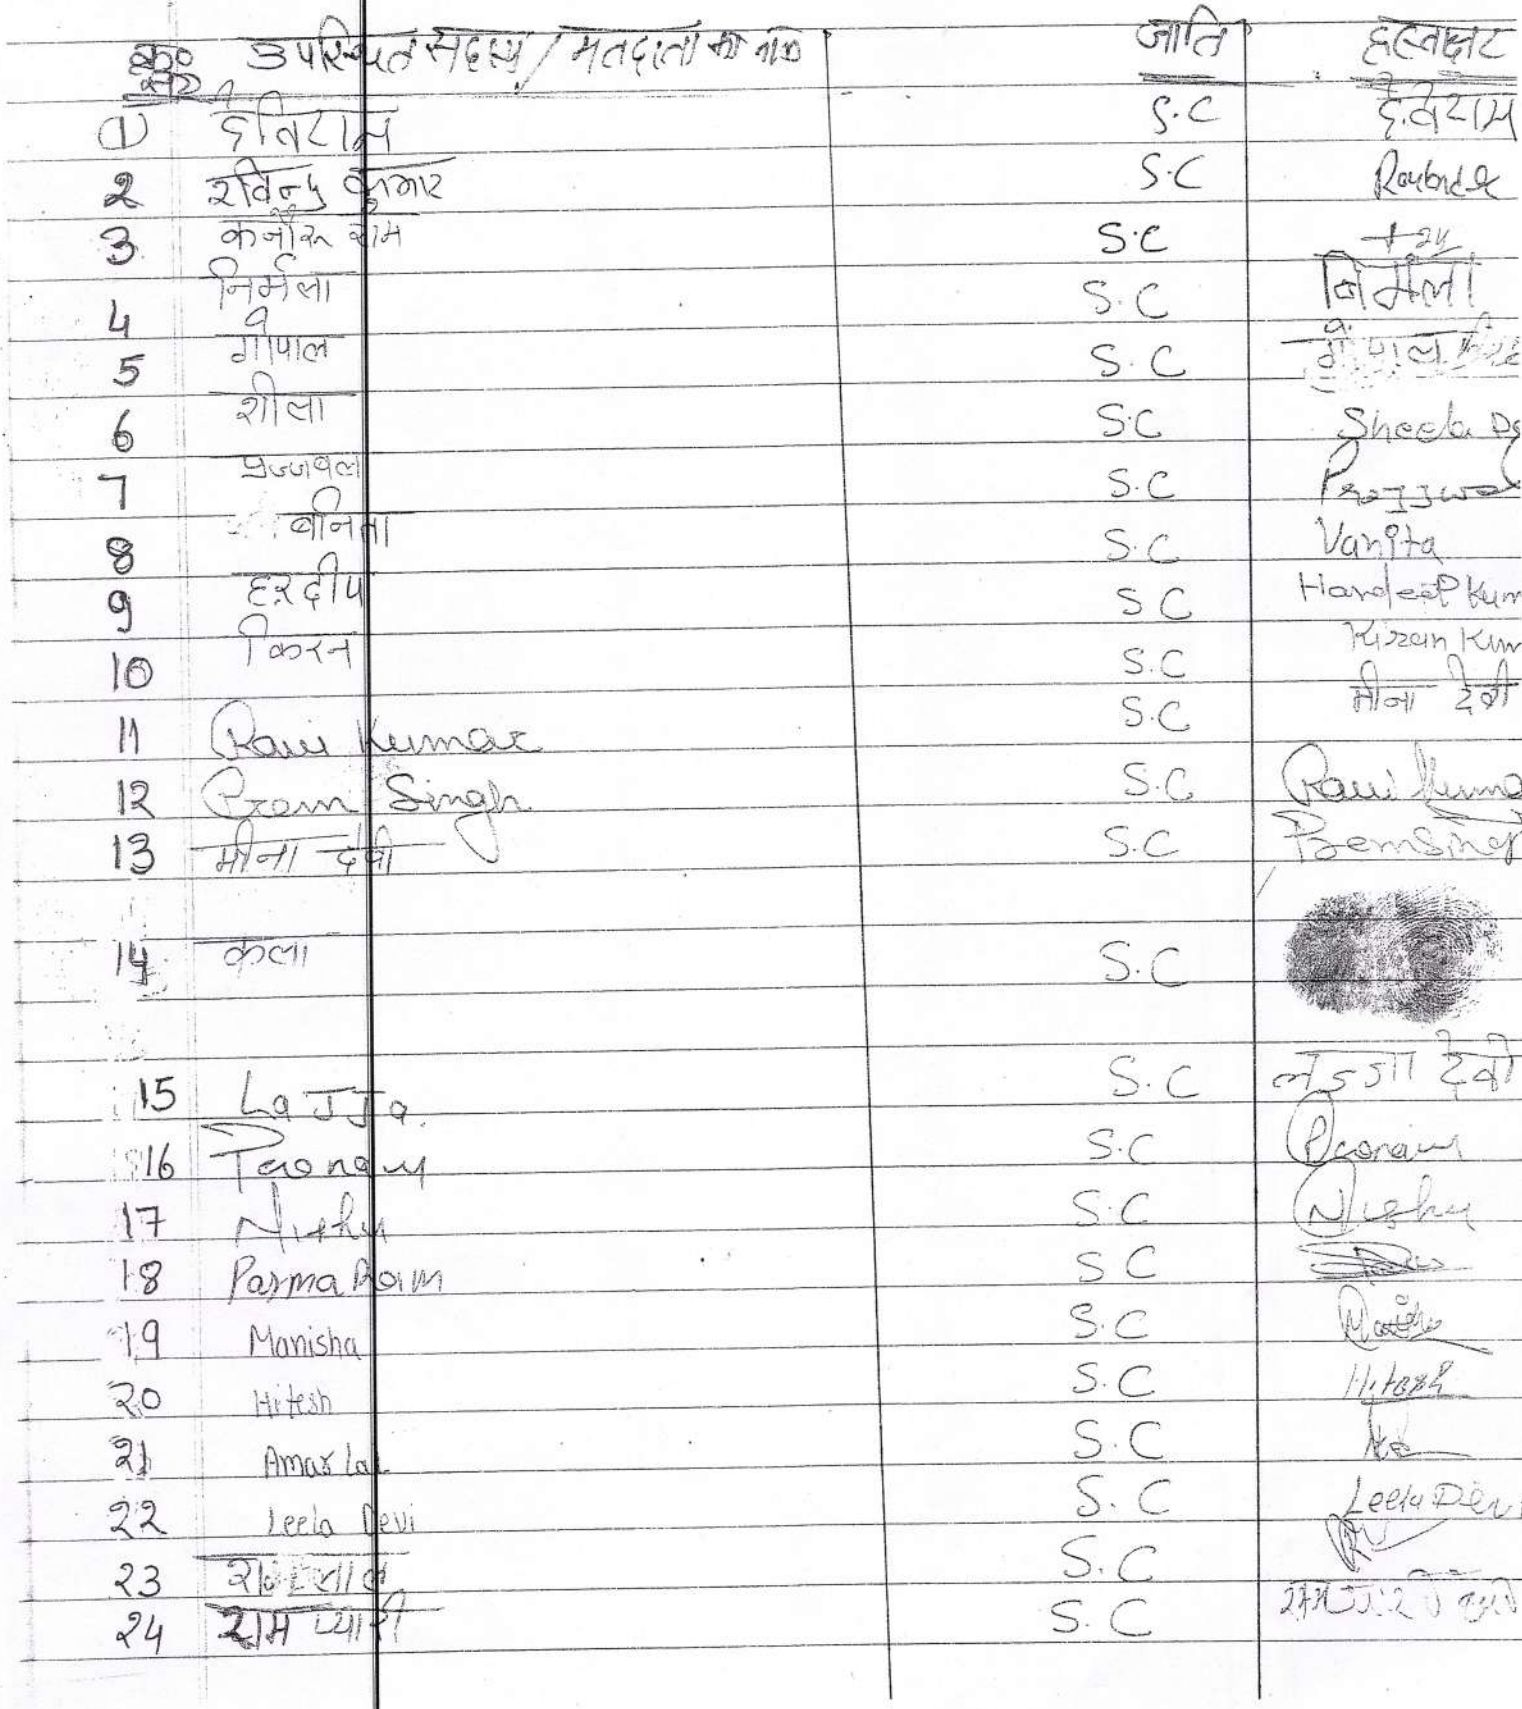 क्र० सं० उपस्थित सदस्य / मतदाता का नाम जाति हस्ताक्षर
1 S.C
2 रविन्द्र कुमार S.C
3 राम S.C
4 निर्मला S.C निर्मला
5 गोपाल S.C गोपाल
6 शीला S.C Sheela
7 प्रज्जवल S.C Prajjwal
8 बनिता S.C Vanita
9 हरदीप S C Hardeep Kum
10 किरन S.C Kiran Kum
S.C मीना देवी
11 Ravi Kumar
12 Prem Singh S.C Ravi Kuma
13 मीना देवी S.C Prem Sing
14 कला S.C
15 La JJa. S.C लज्जा देवी
16 Poonam S.C Poonam
17 Nishu S.C Nishu
18 Parma Ram S C
19 Manisha S.C
20 Hitesh S.C Hitesh
21 Amar Lal S.C
22 Leela Devi S.C Leela Devi
23 S.C
24 राम प्यारी S.C